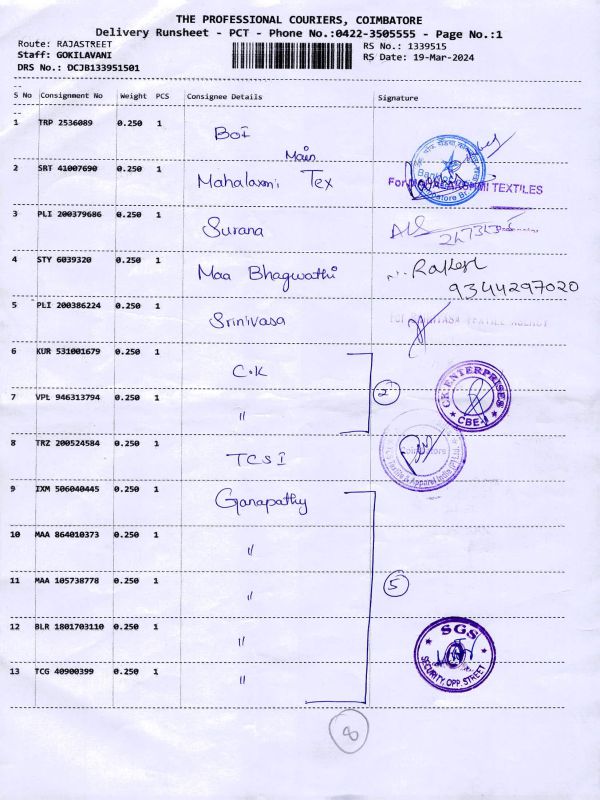 THE PROFESSIONAL COURIERS, COIMBATORE
Delivery Runsheet - PCT - Phone No.:0422-3505555 - Page No.:1
Route: RAJASTREET
RS No.: 1339515
Staff: GOKILAVANI
RS Date: 19-Mar-2024
DRS No.: DCJB133951501
S No Consignment No Weight PCS Consignee Details Signature
1 TRP 2536089 0.250 1 BOI
Main
2 SRT 41007690 0.250 1 Mahalaxmi Tex
MAHALAKSHMI TEXTILES
3 PLI 200379686 0.250 1 Surana
4 STY 6039320 0.250 1 Maa Bhagwathi Rakesh
9344297020
5 PLI 200386224 0.250 1 Srinivasa
TEXTILE AGENCY
6 KUR 531001679 0.250 1 C.K
CK ENTERPRISES
2
CBE-1
7 VPL 946313794 0.250 1 "
8 TRZ 200524584 0.250 1 TCSI
Textile & Apparel India (P) Ltd.
9 IXM 506040445 0.250 1 Ganapathy
10 MAA 864010373 0.250 1 "
11 MAA 105738778 0.250 1 "
5
12 BLR 1801703110 0.250 1 "
SGS
SECURITY, OPP. STREET
13 TCG 40900399 0.250 1 "
8